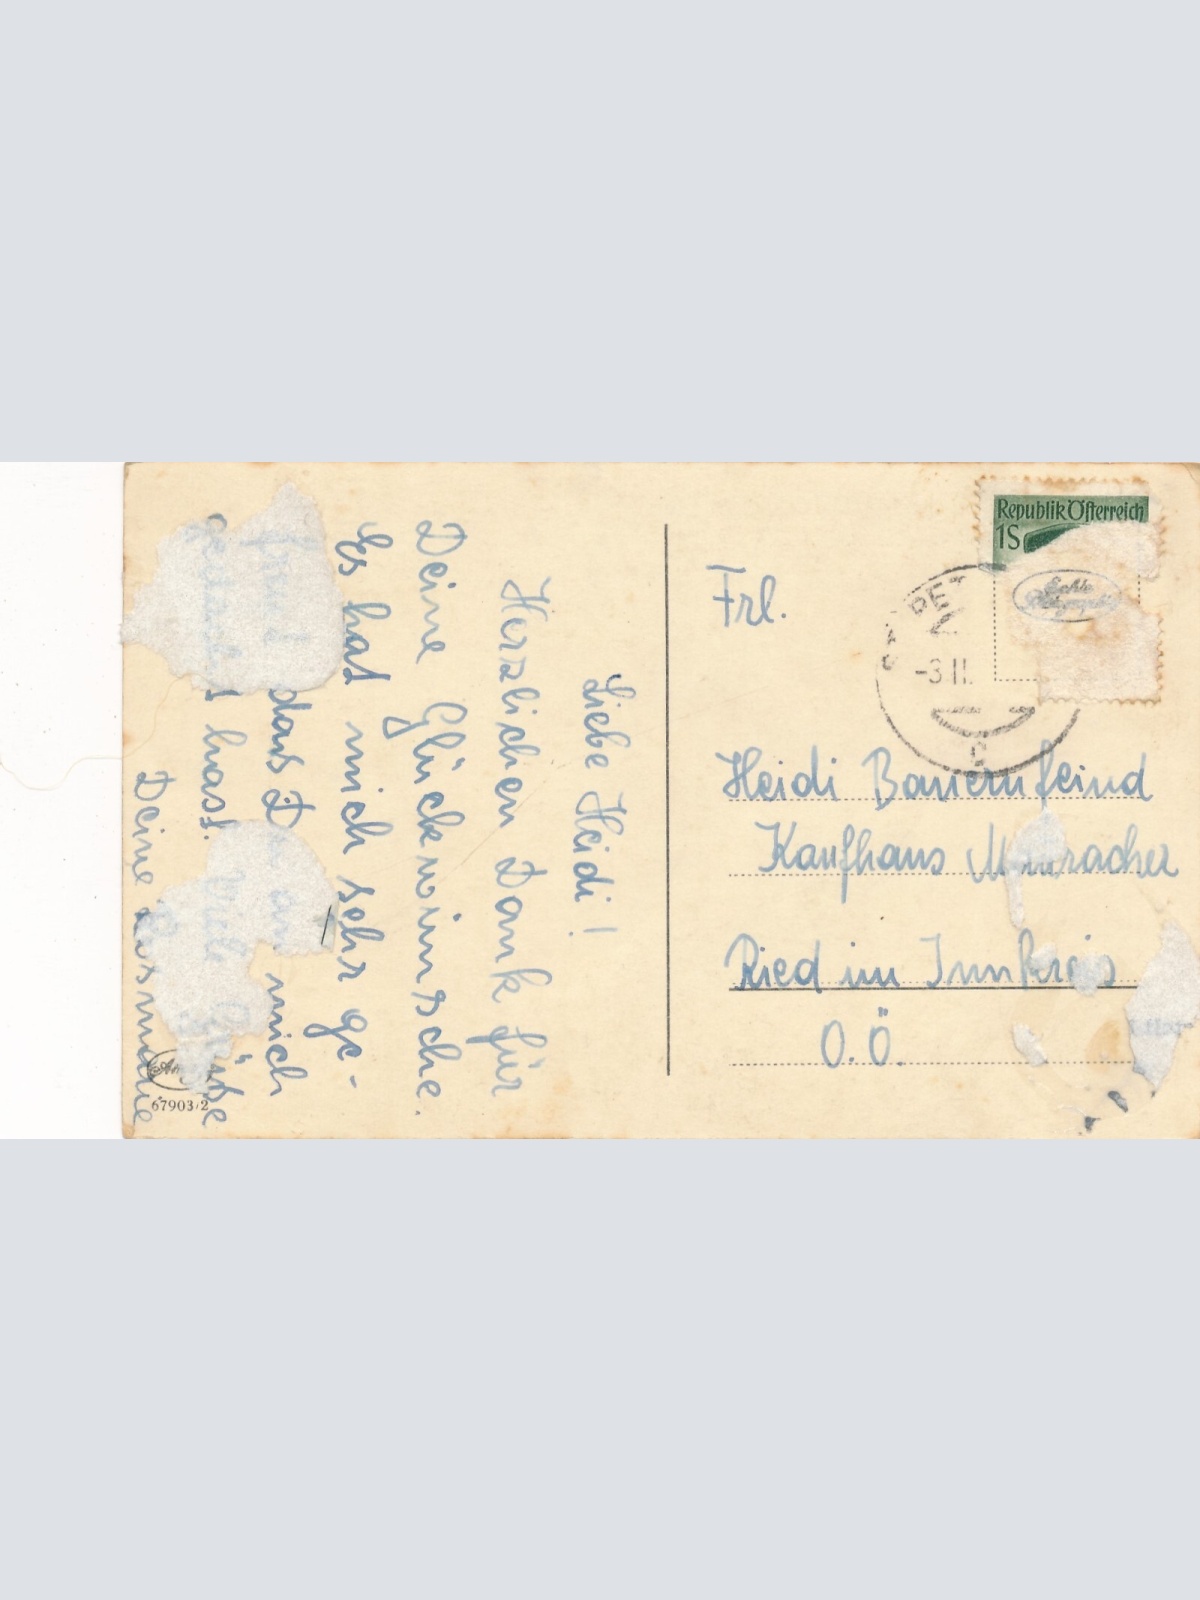 Liebe Heidi!
Herzlichen Dank für
Deine Glückwünsche.
Es hat mich sehr ge-
freut das Du an mich
gedacht hast. Viele Grüße
Deine Rosmarie
67903/2
Republik Österreich
1S
-3.II.
c
Frl.
Heidi Bauernfeind
Kaufhaus
Ried im Innkreis
O.Ö.